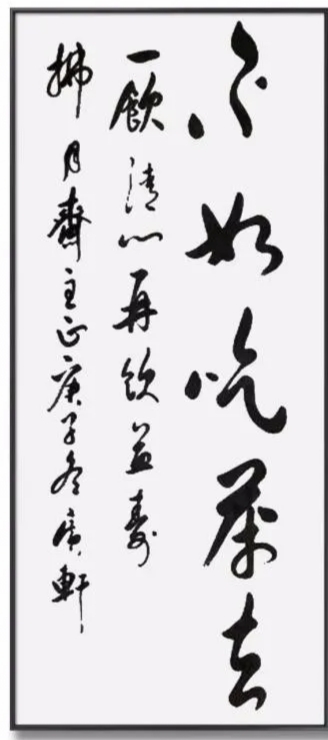 不如吃茶去
一饮清心再饮益寿
拂月齋主正庚子冬广軒